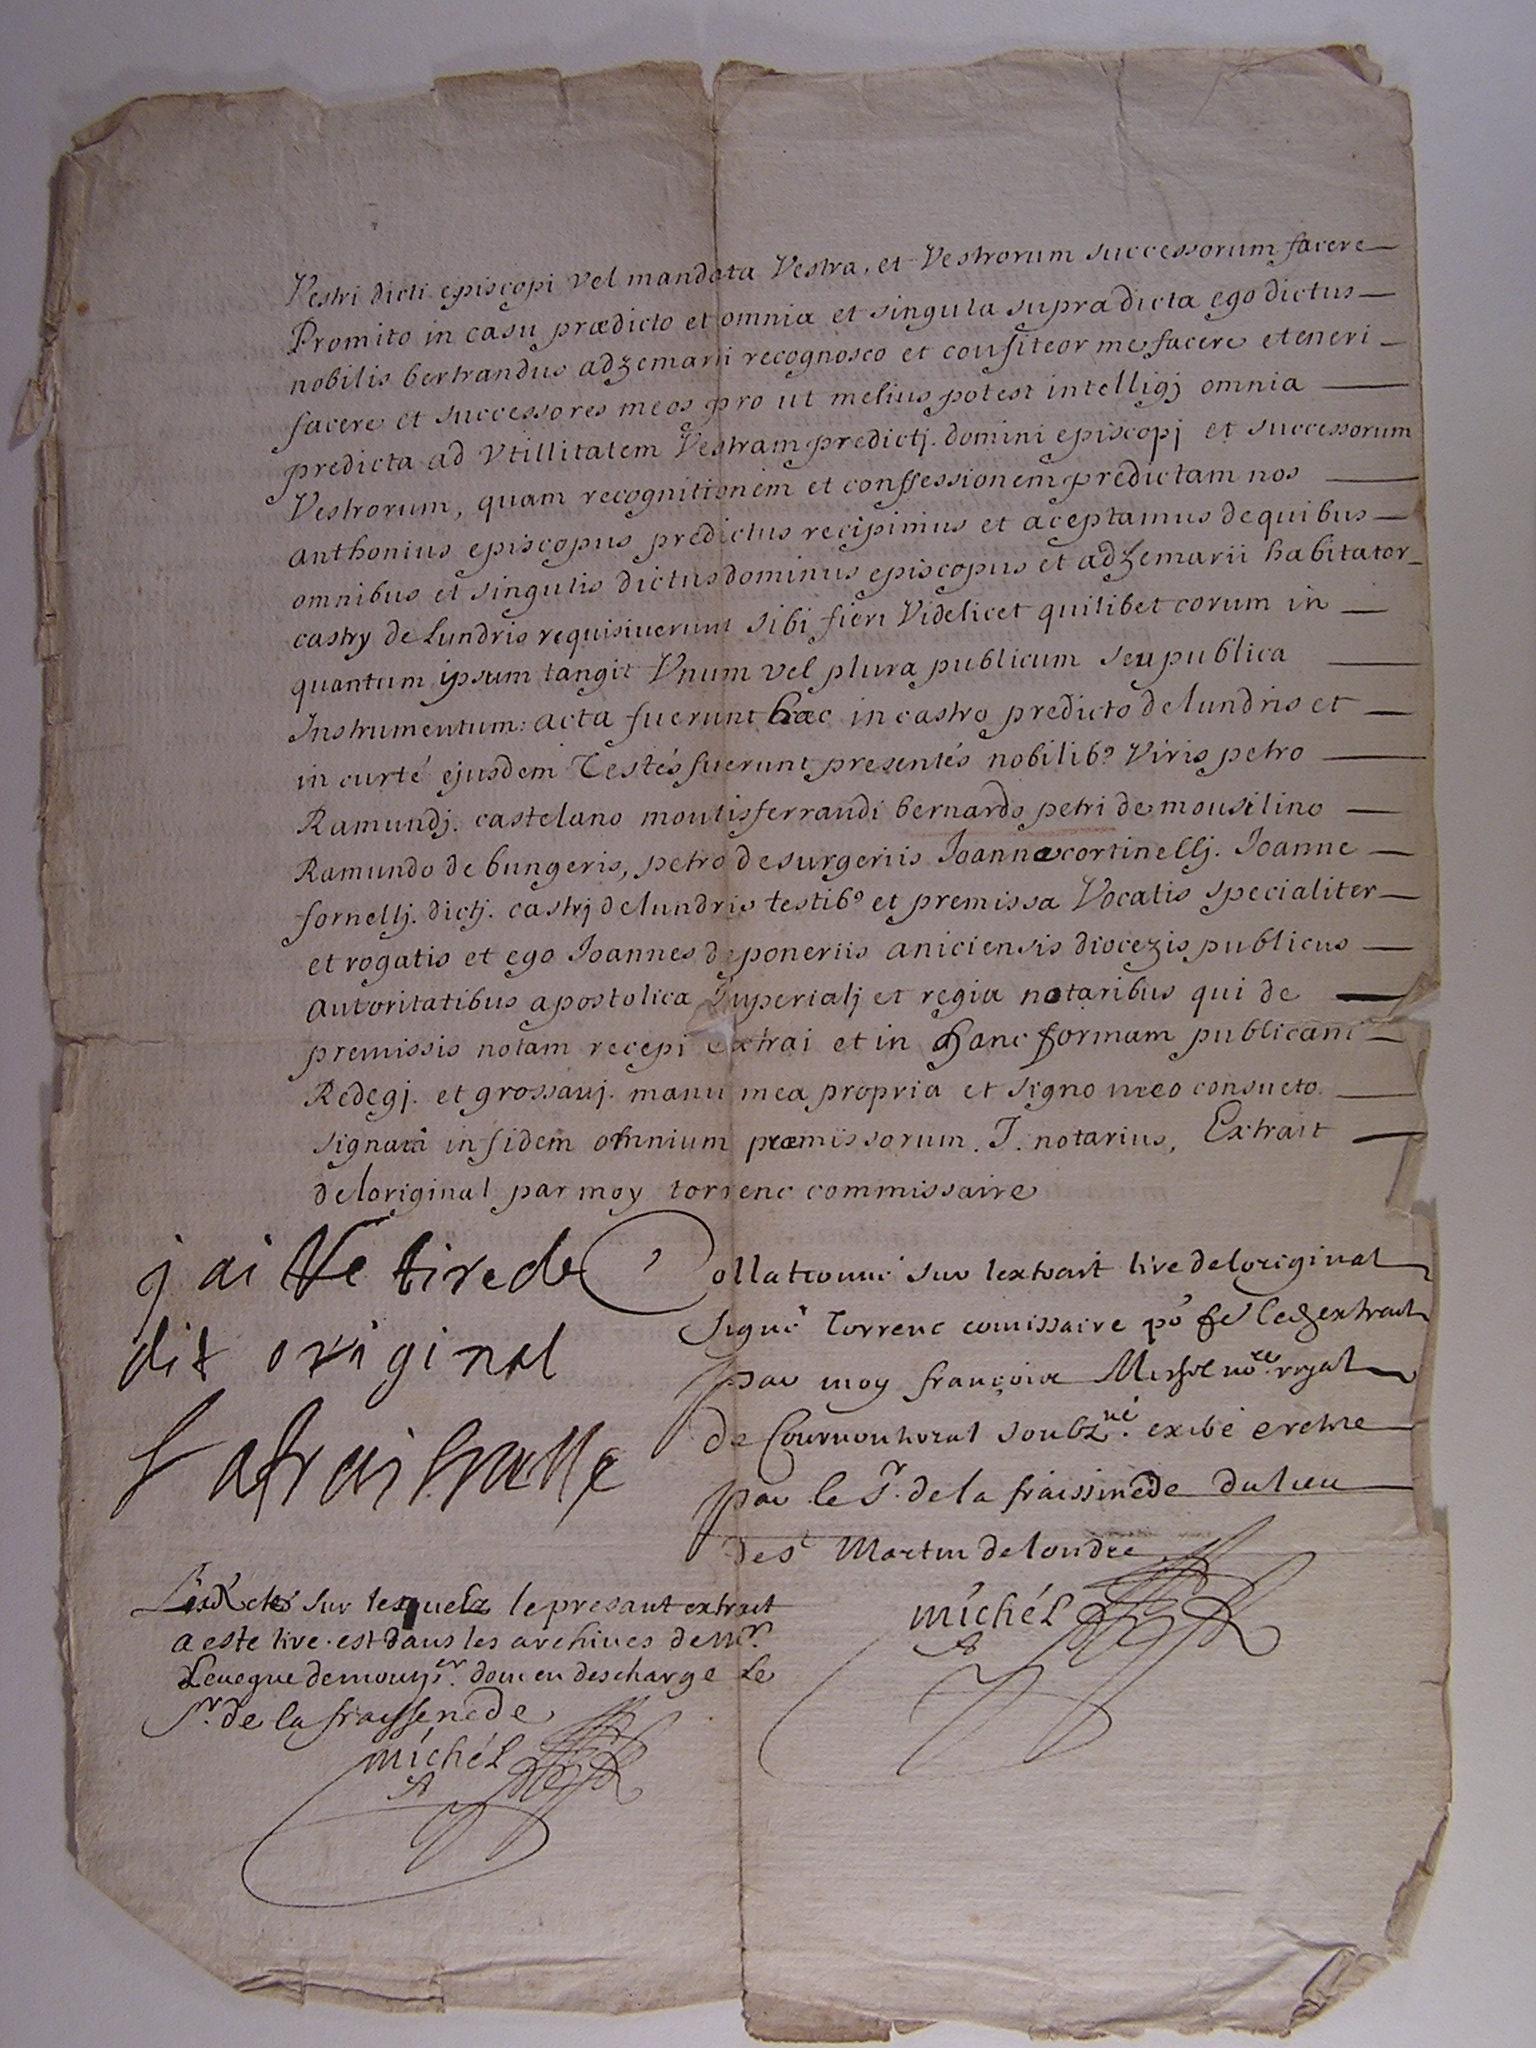 Vestri dicti episcopi vel mandata Vestra, et Vestrorum successorum facere
Promito in casu prædicto et omnia et singula supra dicta ego dictus
nobilis bertrandus adzemarii recognosco et confiteor me facere et teneri
facere et successores meos pro ut melius potest intelligj omnia
predicta ad Vtillitatem Vestram predictj. domini episcopj et successorum
Vestrorum, quam recognitionem et confessionem predictam nos
anthonius episcopus predictus recipimus et aceptamus de quibus
omnibus et singulis dictus dominus episcopus et adzemarii habitator
castrj de Lundris requisiuerunt sibi fieri Videlicet quilibet eorum in
quantum ipsum tangit Vnum vel plura publicum seu publica
Instrumentum: acta fuerunt hæc in castro predicto de lundris et
in curté ejusdem Testés fuerunt presentés nobilib9 Viris petro
Ramundj. castelano montisferrandi bernardo petri de mousilino
Ramundo de bungeris, petro de surgeriis Joanne cortinellj. Joanne
fornellj. dictj. castrj de lundris testib9 et premissa Vocatis specialiter
et rogatis et ego Joannes de poneriis aniciensis diocezis publicus
autoritatibus apostolica Imperialj et regia notaribus qui de
premissis notam recepi extrai et in hanc formam publicam
Redegj. et grossauj. manu mea propria et signo meo consueto
signaui in fidem omnium præmissorum. J. notarius, Extrait
de loriginal par moy torrenc commissaire
j ai Re tire de
dit original
Collationné sur lextrait tire de loriginal
signé Torrenc comissaire extrait
par moy françois Michel no.re royal
de Cournonterral soubz.né exibé e retire
par le Sr. de la fraissinede du lieu
de st Martin de londre
michél
sur lesquelz le presant extrait
a este tire est dans les archives de mr.
Leuegue de don en descharge Le
sr. de la fraissenede
michél